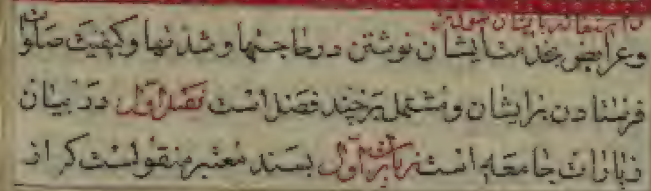 و استغاثه بایشان
وعرایض بخدمت ایشان نوشتن در حاجتها و شدتها وکیفیت صلوات
فرستادن بر ایشان و مشتمل بر چند فصل است فصل اول در بیان
زیارات جامعه است زیارت اول بسند معتبر منقولست که از